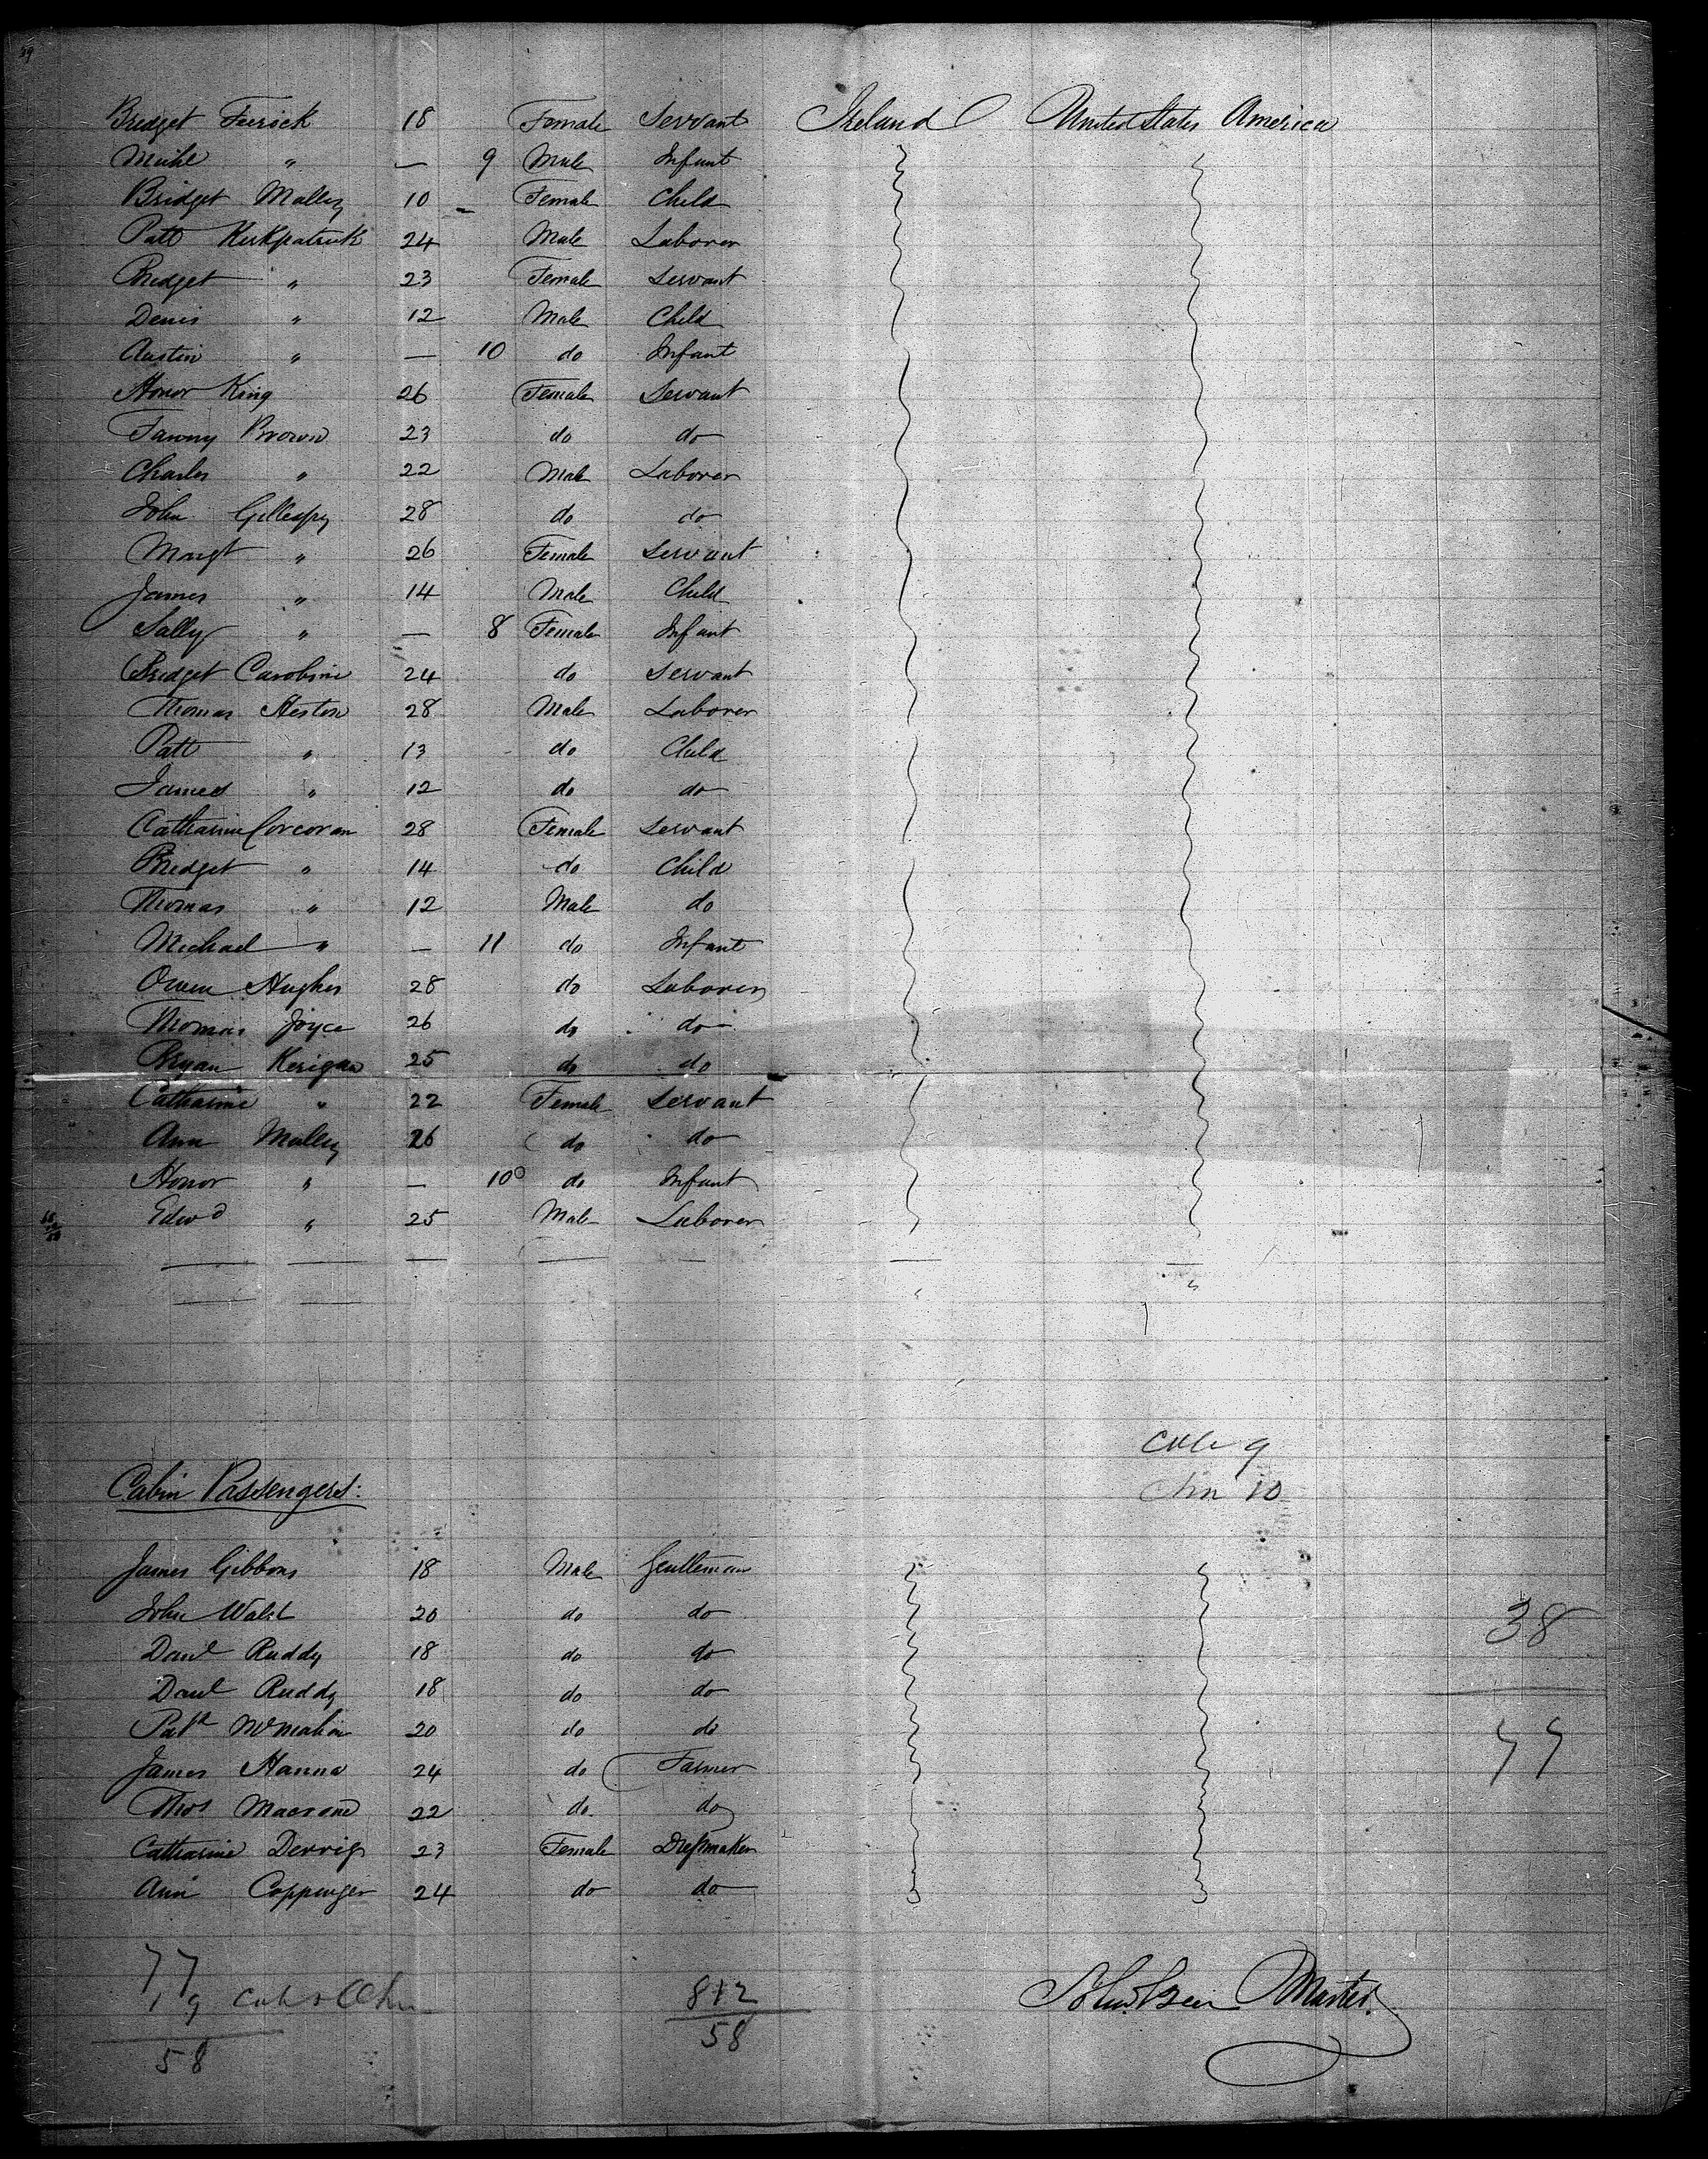 Bridget Feerick 18 Female Servant Ireland United States America
Michl " — 9 Male Infant
Bridget Malley 10 Female Child
Patt Kirkpatrick 24 Male Laborer
Bridget " 23 Female Servant
Denis " 12 Male Child
Austin " — 10 do Infant
Honor King 26 Female Servant
Fanny Brown 23 do do
Charles " 22 Male Laborer
John Gillespy 28 do do
Margt " 26 Female Servant
James " 14 Male Child
Sally " — 8 Female Infant
Bridget 24 do Servant
Thomas Heston 28 Male Laborer
Patt " 13 do Child
James " 12 do do
Catharine Corcoran 28 Female Servant
Bridget " 14 do Child
Thomas " 12 Male do
Michael " — 11 do Infant
Owen Hughes 28 do Laborer
Thomas Joyce 26 do do
Bryan Kerigan 25 do do
Catharine " 22 Female Servant
Ann Malley 26 do do
Honor " — 10 do Infant
Edwd " 25 Male Laborer
9
10
Cabin Passengers:
James Gibbons 18 Male Gentleman
John Walsh 20 do do
38
Danl Ruddy 18 do do
Danl Ruddy 18 do do
Patk McMahon 20 do do
James Hanna 24 do Farmer
Thos 22 do do
Catharine Derrig 23 Female Dressmaker
Ann Coppinger 24 do do
77
19
812
Master
58
58